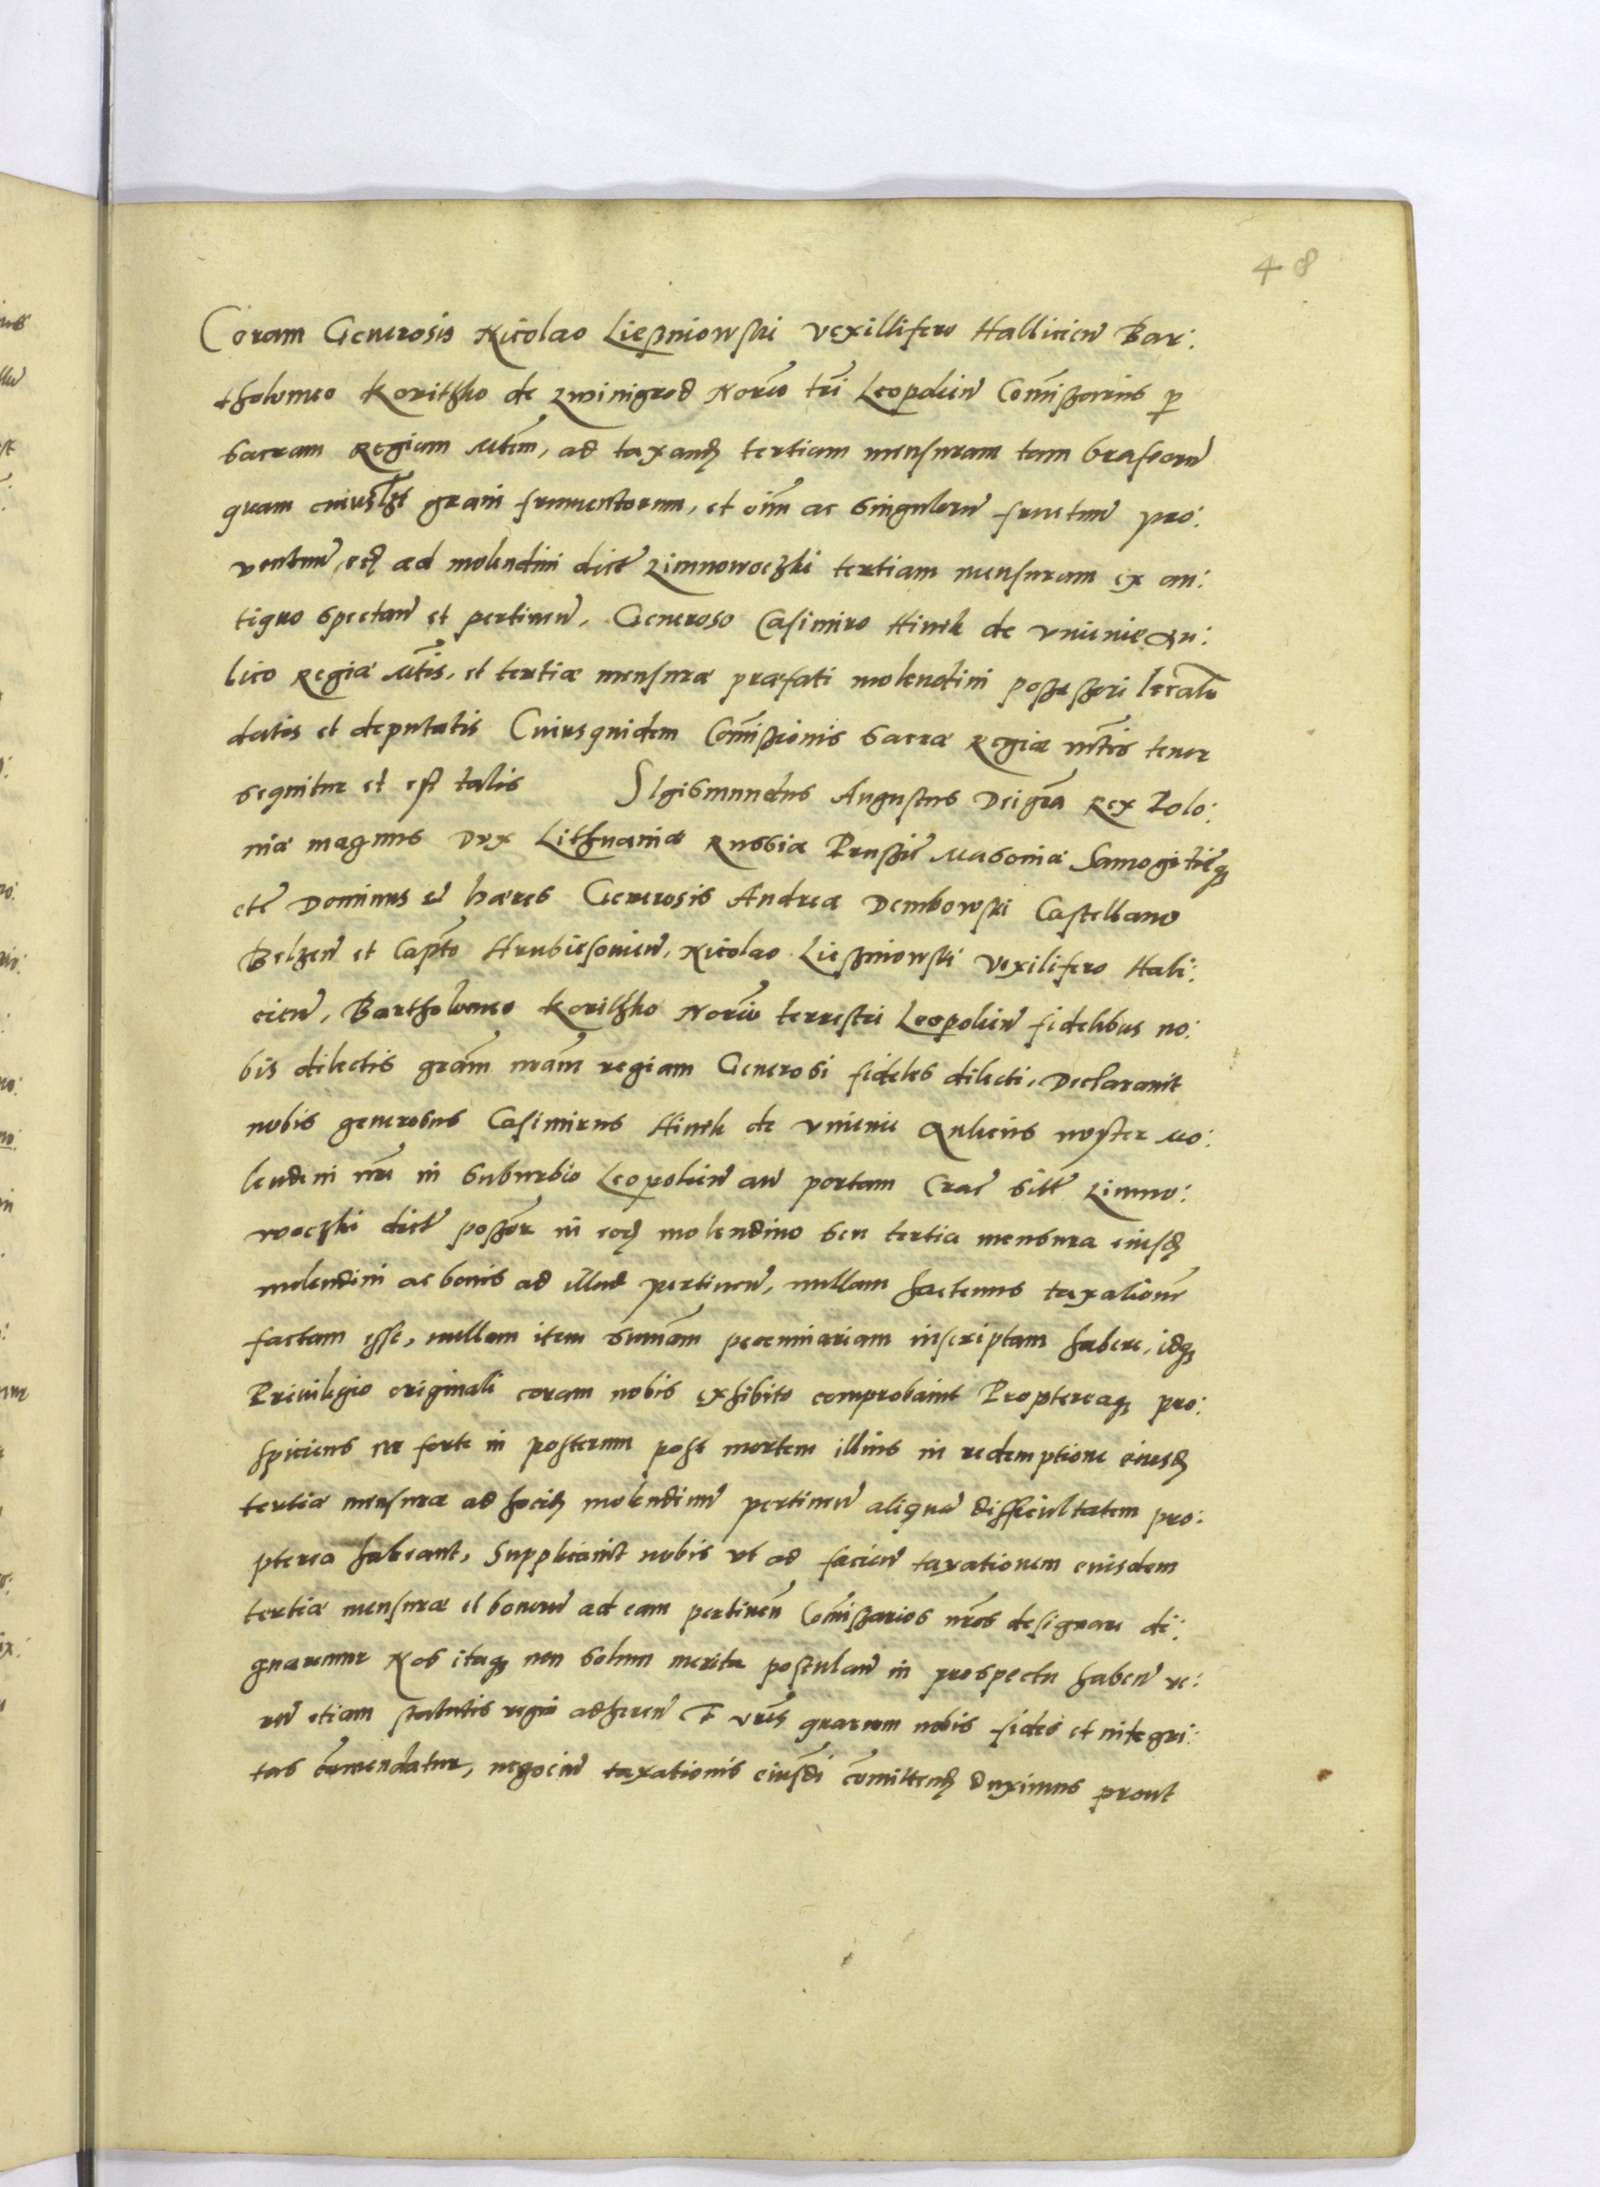 48
Coram Generosis Nicolao Liesniowski vexillifero Hallicien̄ Bar:
tholomeo Korithko de Zwinigrod Norio tri Leopolien̄ Com̄issariis p
sacram Regiam Mtem, ad taxand tertiam mensuram tam braseorū
quam cuiuslibet grani frumentorum, et oīm ac singulorū fructuū pro:
ventuū, eoq ad molendini dict Zimnowoczki tertiam mensuram ex an:
tiquo spectan̄ et pertinen̄, Generoso Casimiro Hinek de Unienie Au:
lico Regiæ Mtis, et tertiæ mensuræ præfati molendini possessori
datis et deputatis Cuiusquidem Com̄issionis Sacræ Regiæ Mtis tenor
sequitur et est talis Sigismundus Augustus Dei gra Rex Polo:
niæ magnus Dux Lithuaniæ Russiæ Prussiæ Masoviæ Samogitięq
etc Dominus et hæres Generosis Andreæ Dembowski Castellano
Belzen̄ et Capto Hrubiesovien̄, Nicolao Liesniowski Vexilifero Hali:
cien̄, Bartholomeo Korithko Norio terrestri Leopolien̄ fidelibus no:
bis dilectis gram nram regiam Generosi fideles dilecti, Declaravit
nobis generosus Casimirus Hinek de Unienie Aulicus noster Mo:
lendini nri in suburbio Leopolien̄ an̄ portam Crac sitt Zimno:
woczki dict possor in eod molendino seu tertia mensura eiusd
molendini ac bonis ad illud pertinen̄, nullam hactenus taxationē
factam esse, nullam item sum̄am pecuniariam inscriptam habere, idq
Privilegio originali coram nobis exhibito comprobavit Proptereaq pro:
spiciens ne forte in posterum post mortem illius in redemptione eiusd
tertiæ mensuræ ad hocid molendinū pertinen̄ aliquā difficultatem pro:
pterea habeant, Supplicavit nobis ut ad facien̄ taxationem eiusdem
tertiæ mensuræ et bonorū ad eam pertinen̄ Com̄issarios nros designare di:
gnaremur Nos itaq non solum merita postulan̄ in prospectu haben̄ ve:
rū etiam statutis regni adheren̄ F vris quarum nobis fides et integri:
tas com̄endatur, negociū taxationis eiusdi com̄ittend duximus prout